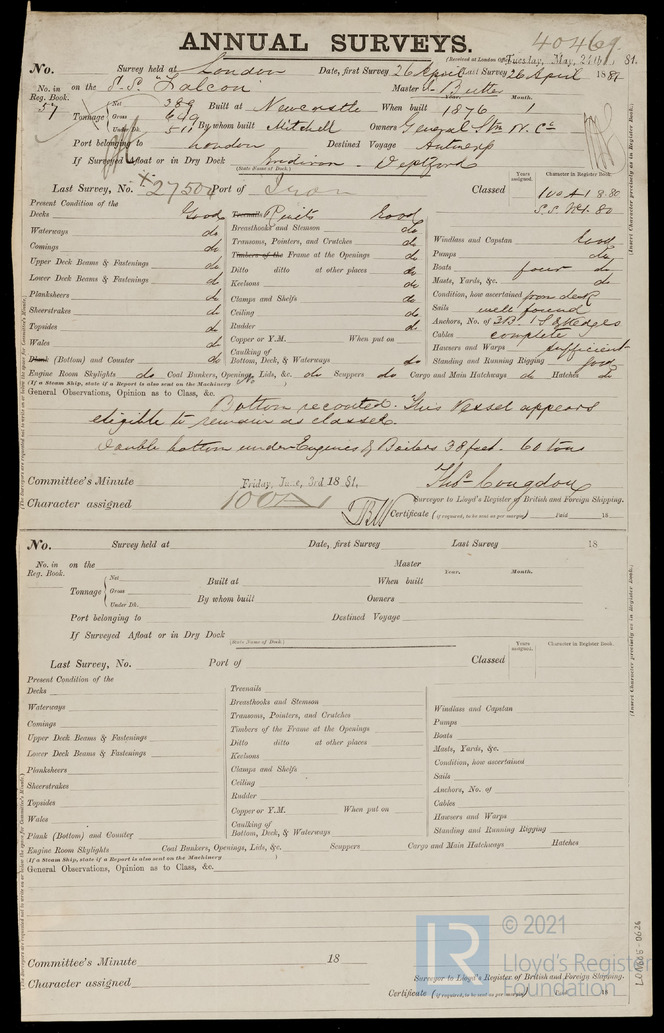 ANNUAL SURVEYS.
40469
(Received at London Office Tuesday, May, 24th 1881.
No. Survey held at London Date, first Survey 26 April Last Survey 26 April 1881
No. in Reg. Book. 57 on the S.S. "Falcon" Master J. Butler
Tonnage Net 389 Gross 649 Under Dk. 511 Built at Newcastle When built Year. 1876 Month. 1
By whom built Mitchell Owners General Stm N. Co
Port belonging to London Destined Voyage Antwerp
If Surveyed Afloat or in Dry Dock Deptford
(State Name of Dock.)
Last Survey, No. 27500 Port of Iron Classed
Years assigned. Character in Register Book.
100 A 1 8.80
S.S. No 1. 80
(Insert Character precisely as in Register Book.)
Present Condition of the
Decks Good
Waterways do
Comings do
Upper Deck Beams & Fastenings do
Lower Deck Beams & Fastenings do
Planksheers do
Sheerstrakes do
Topsides do
Wales do
Plank (Bottom) and Counter do
Treenails Rivits Good
Breasthooks and Stemson do
Transoms, Pointers, and Crutches do
Timbers of the Frame at the Openings do
Ditto ditto at other places do
Keelsons do
Clamps and Shelfs do
Ceiling do
Rudder do
Copper or Y.M. When put on
Caulking of Bottom, Deck, & Waterways do
Windlass and Capstan Good
Pumps do
Boats four do
Masts, Yards, &c. do
Condition, how ascertained from deck
Sails well found
Anchors, No. of 3 B. 1 S & Kedges
Cables complete
Hawsers and Warps sufficient
Standing and Running Rigging good
Engine Room Skylights do Coal Bunkers, Openings, Lids, &c. do Scuppers do Cargo and Main Hatchways do Hatches do
(If a Steam Ship, state if a Report is also sent on the Machinery No )
General Observations, Opinion as to Class, &c.
Bottom recoated. This Vessel appears
eligible to remain as classed.
Double bottom under Engines & Boilers 38 feet. 60 tons
Committee's Minute Friday, June, 3rd 1881. Thos Congdon
Surveyor to Lloyd's Register of British and Foreign Shipping.
Character assigned 100A1
Certificate (if required, to be sent as per margin) Paid 18
No. Survey held at Date, first Survey Last Survey 18
No. in Reg. Book. on the Master
Tonnage Net Gross Under Dk. Built at When built Year. Month.
By whom built Owners
Port belonging to Destined Voyage
If Surveyed Afloat or in Dry Dock
(State Name of Dock.)
Last Survey, No. Port of Classed
Years assigned. Character in Register Book.
(Insert Character precisely as in Register Book.)
Present Condition of the
Decks
Waterways
Comings
Upper Deck Beams & Fastenings
Lower Deck Beams & Fastenings
Planksheers
Sheerstrakes
Topsides
Wales
Plank (Bottom) and Counter
Treenails
Breasthooks and Stemson
Transoms, Pointers, and Crutches
Timbers of the Frame at the Openings
Ditto ditto at other places
Keelsons
Clamps and Shelfs
Ceiling
Rudder
Copper or Y.M. When put on
Caulking of Bottom, Deck, & Waterways
Windlass and Capstan
Pumps
Boats
Masts, Yards, &c.
Condition, how ascertained
Sails
Anchors, No. of
Cables
Hawsers and Warps
Standing and Running Rigging
Engine Room Skylights Coal Bunkers, Openings, Lids, &c. Scuppers Cargo and Main Hatchways Hatches
(If a Steam Ship, state if a Report is also sent on the Machinery )
General Observations, Opinion as to Class, &c.
Committee's Minute 18
Surveyor to Lloyd's Register of British and Foreign Shipping.
Character assigned
Certificate (if required, to be sent as per margin) Paid 18
LR © 2021
Lloyd's Register
Foundation